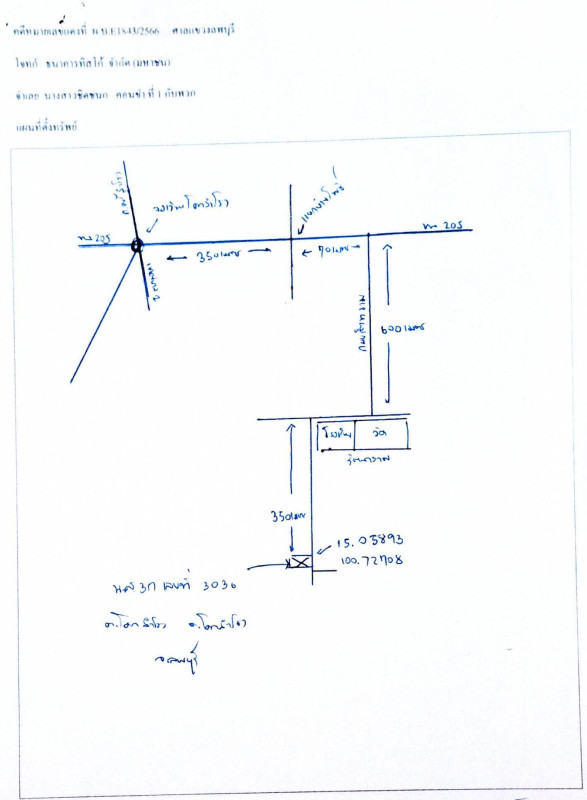 คดีหมายเลขแดงที่ ผบ.E1843/2566 ศาลแขวงลพบุรี
โจทก์ ธนาคารทิสโก้ จำกัด (มหาชน)
จำเลย นางสาวชิดชนก ที่ 1 กับพวก
แผนที่ตั้งทรัพย์
ทล 205
ทล 205
350 เมตร
70 เมตร
600 เมตร
โรงเรียน วัด
350 เมตร
15.05893
100.72708
นส 3ก เลขที่ 3036
ต.โคกสำโรง อ.โคกสำโรง
จ.ลพบุรี